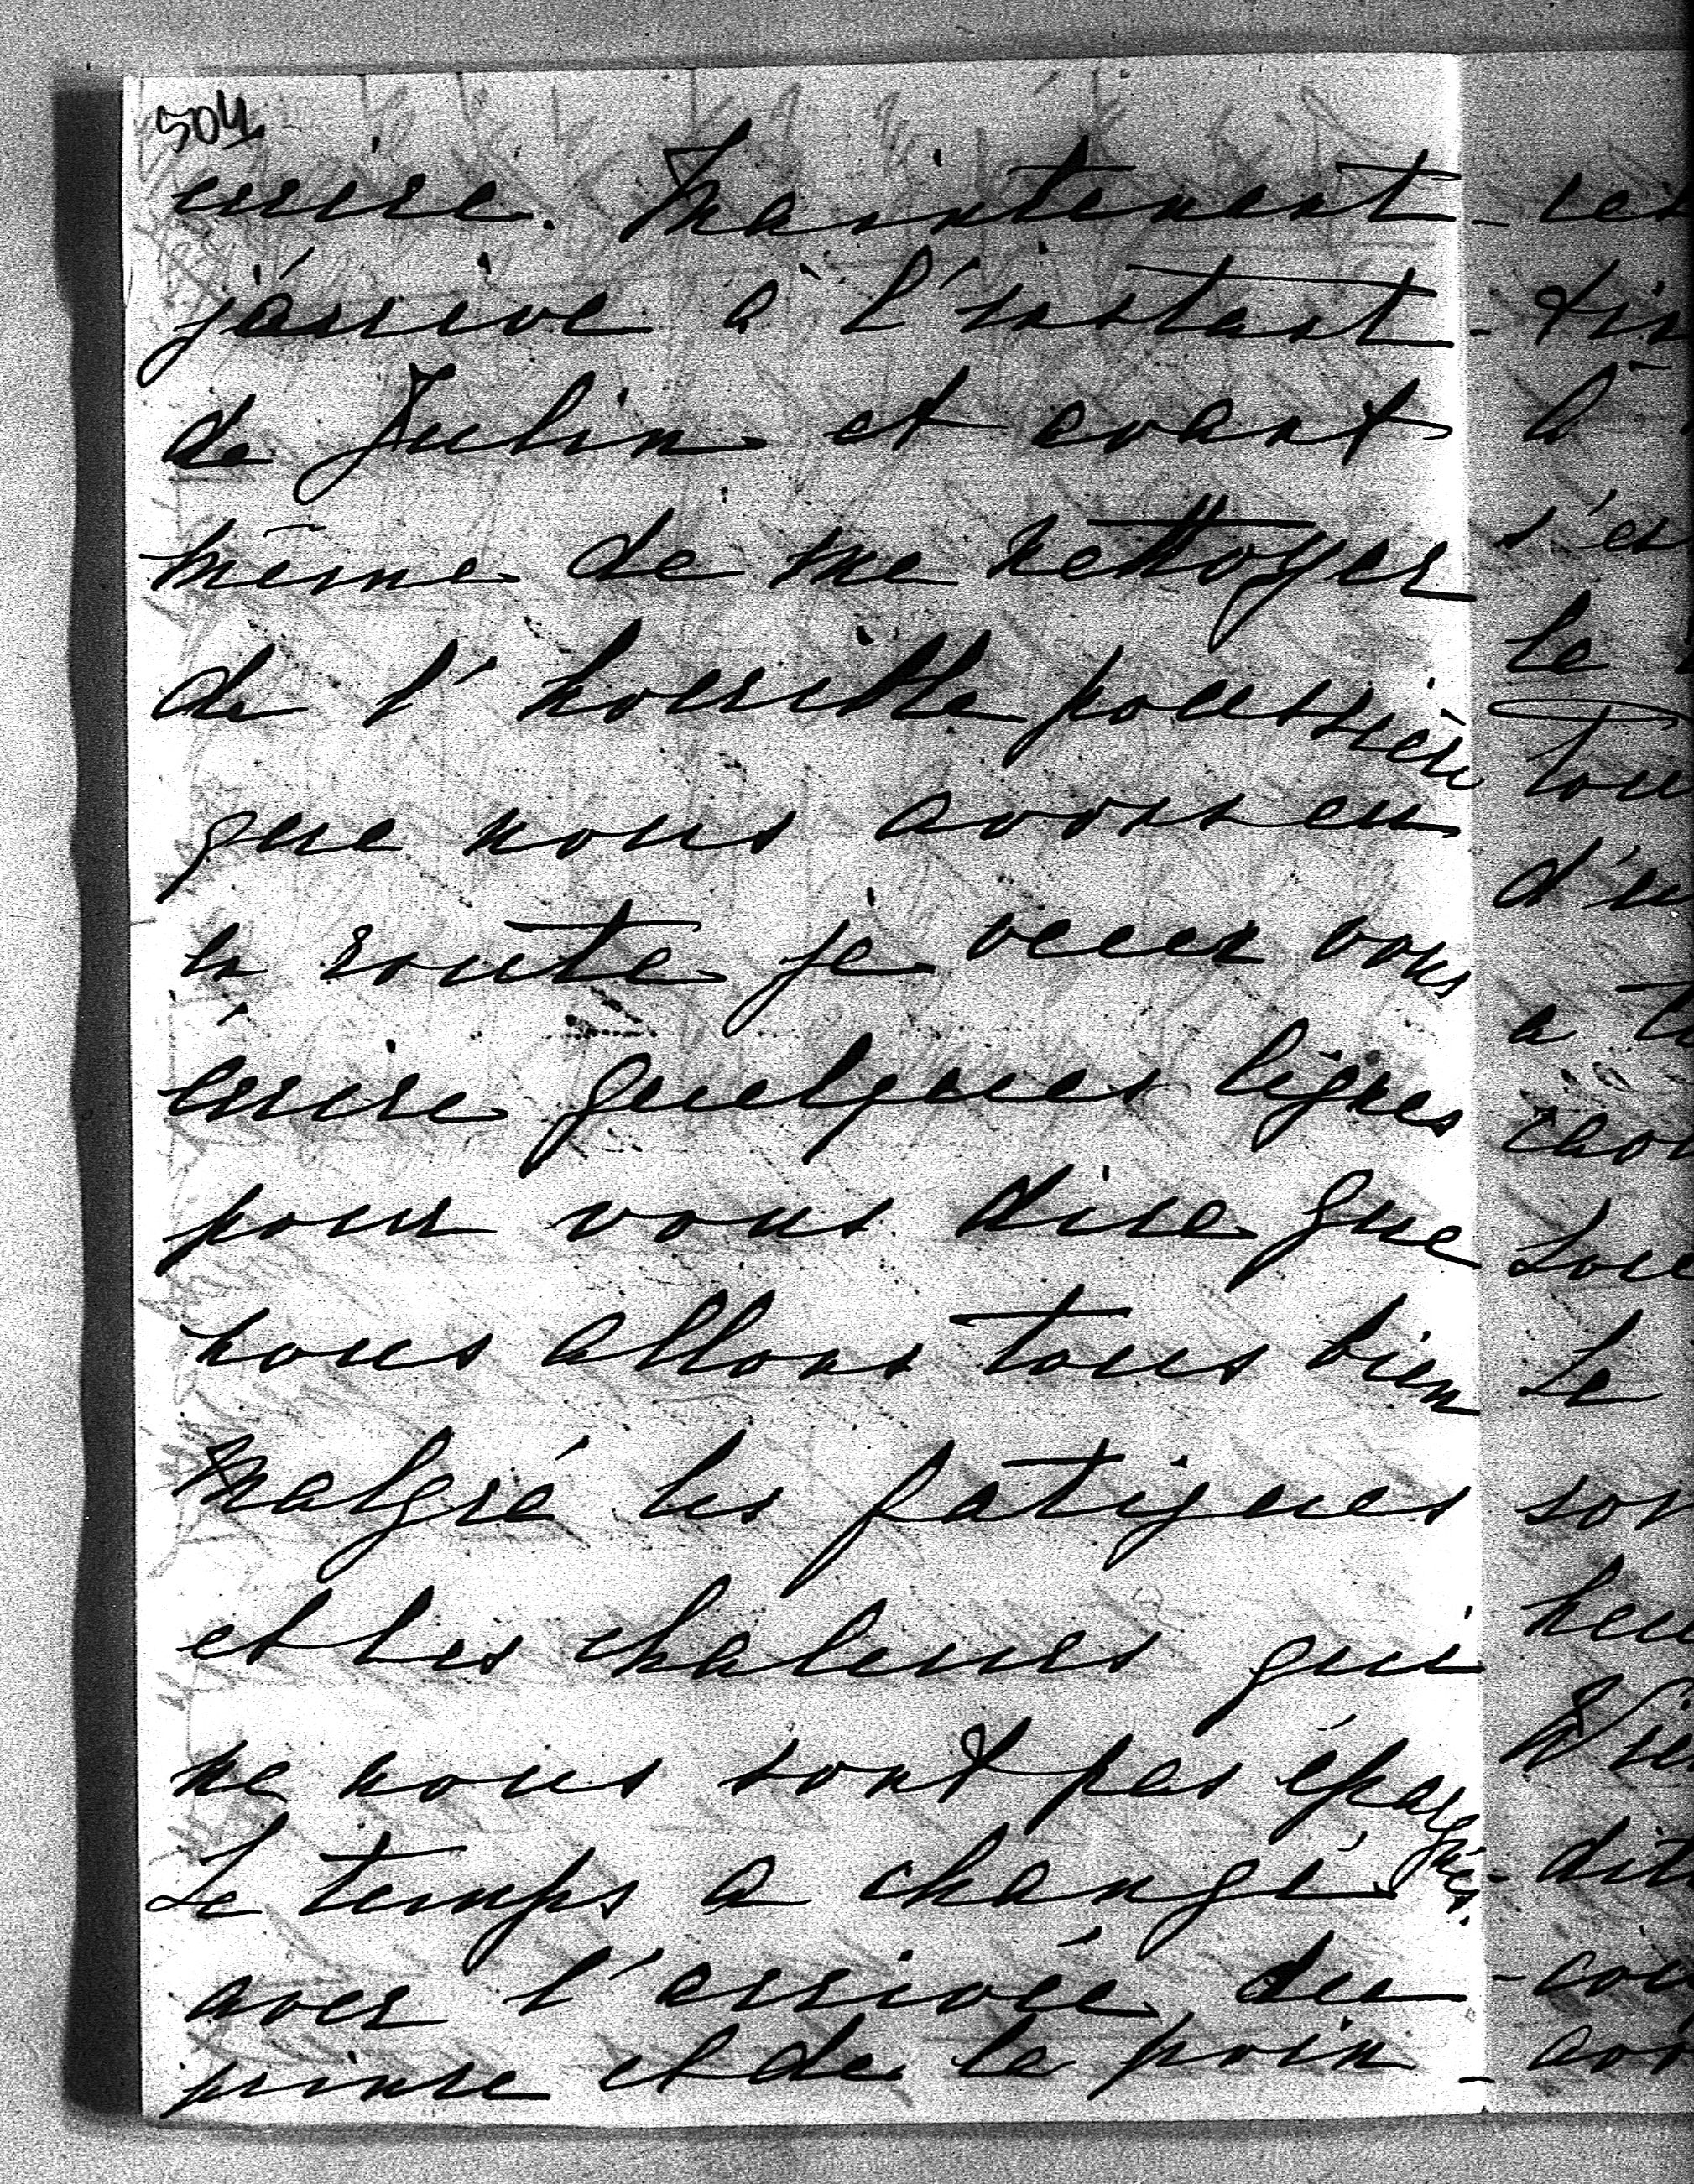 504
crire. Maintenant
j'arrive à l'instant
de Julin et avant
même de me nettoyer
de l'horrible poussière
que nous avons eu
en route je veux vous
écrire quelques lignes
pour vous dire que
nous allons tous bien
malgré les fatigues
et les chaleurs qui
ne nous sont pas épargnés.
Le temps a changé
avec l'arrivée du
prince et de la prin